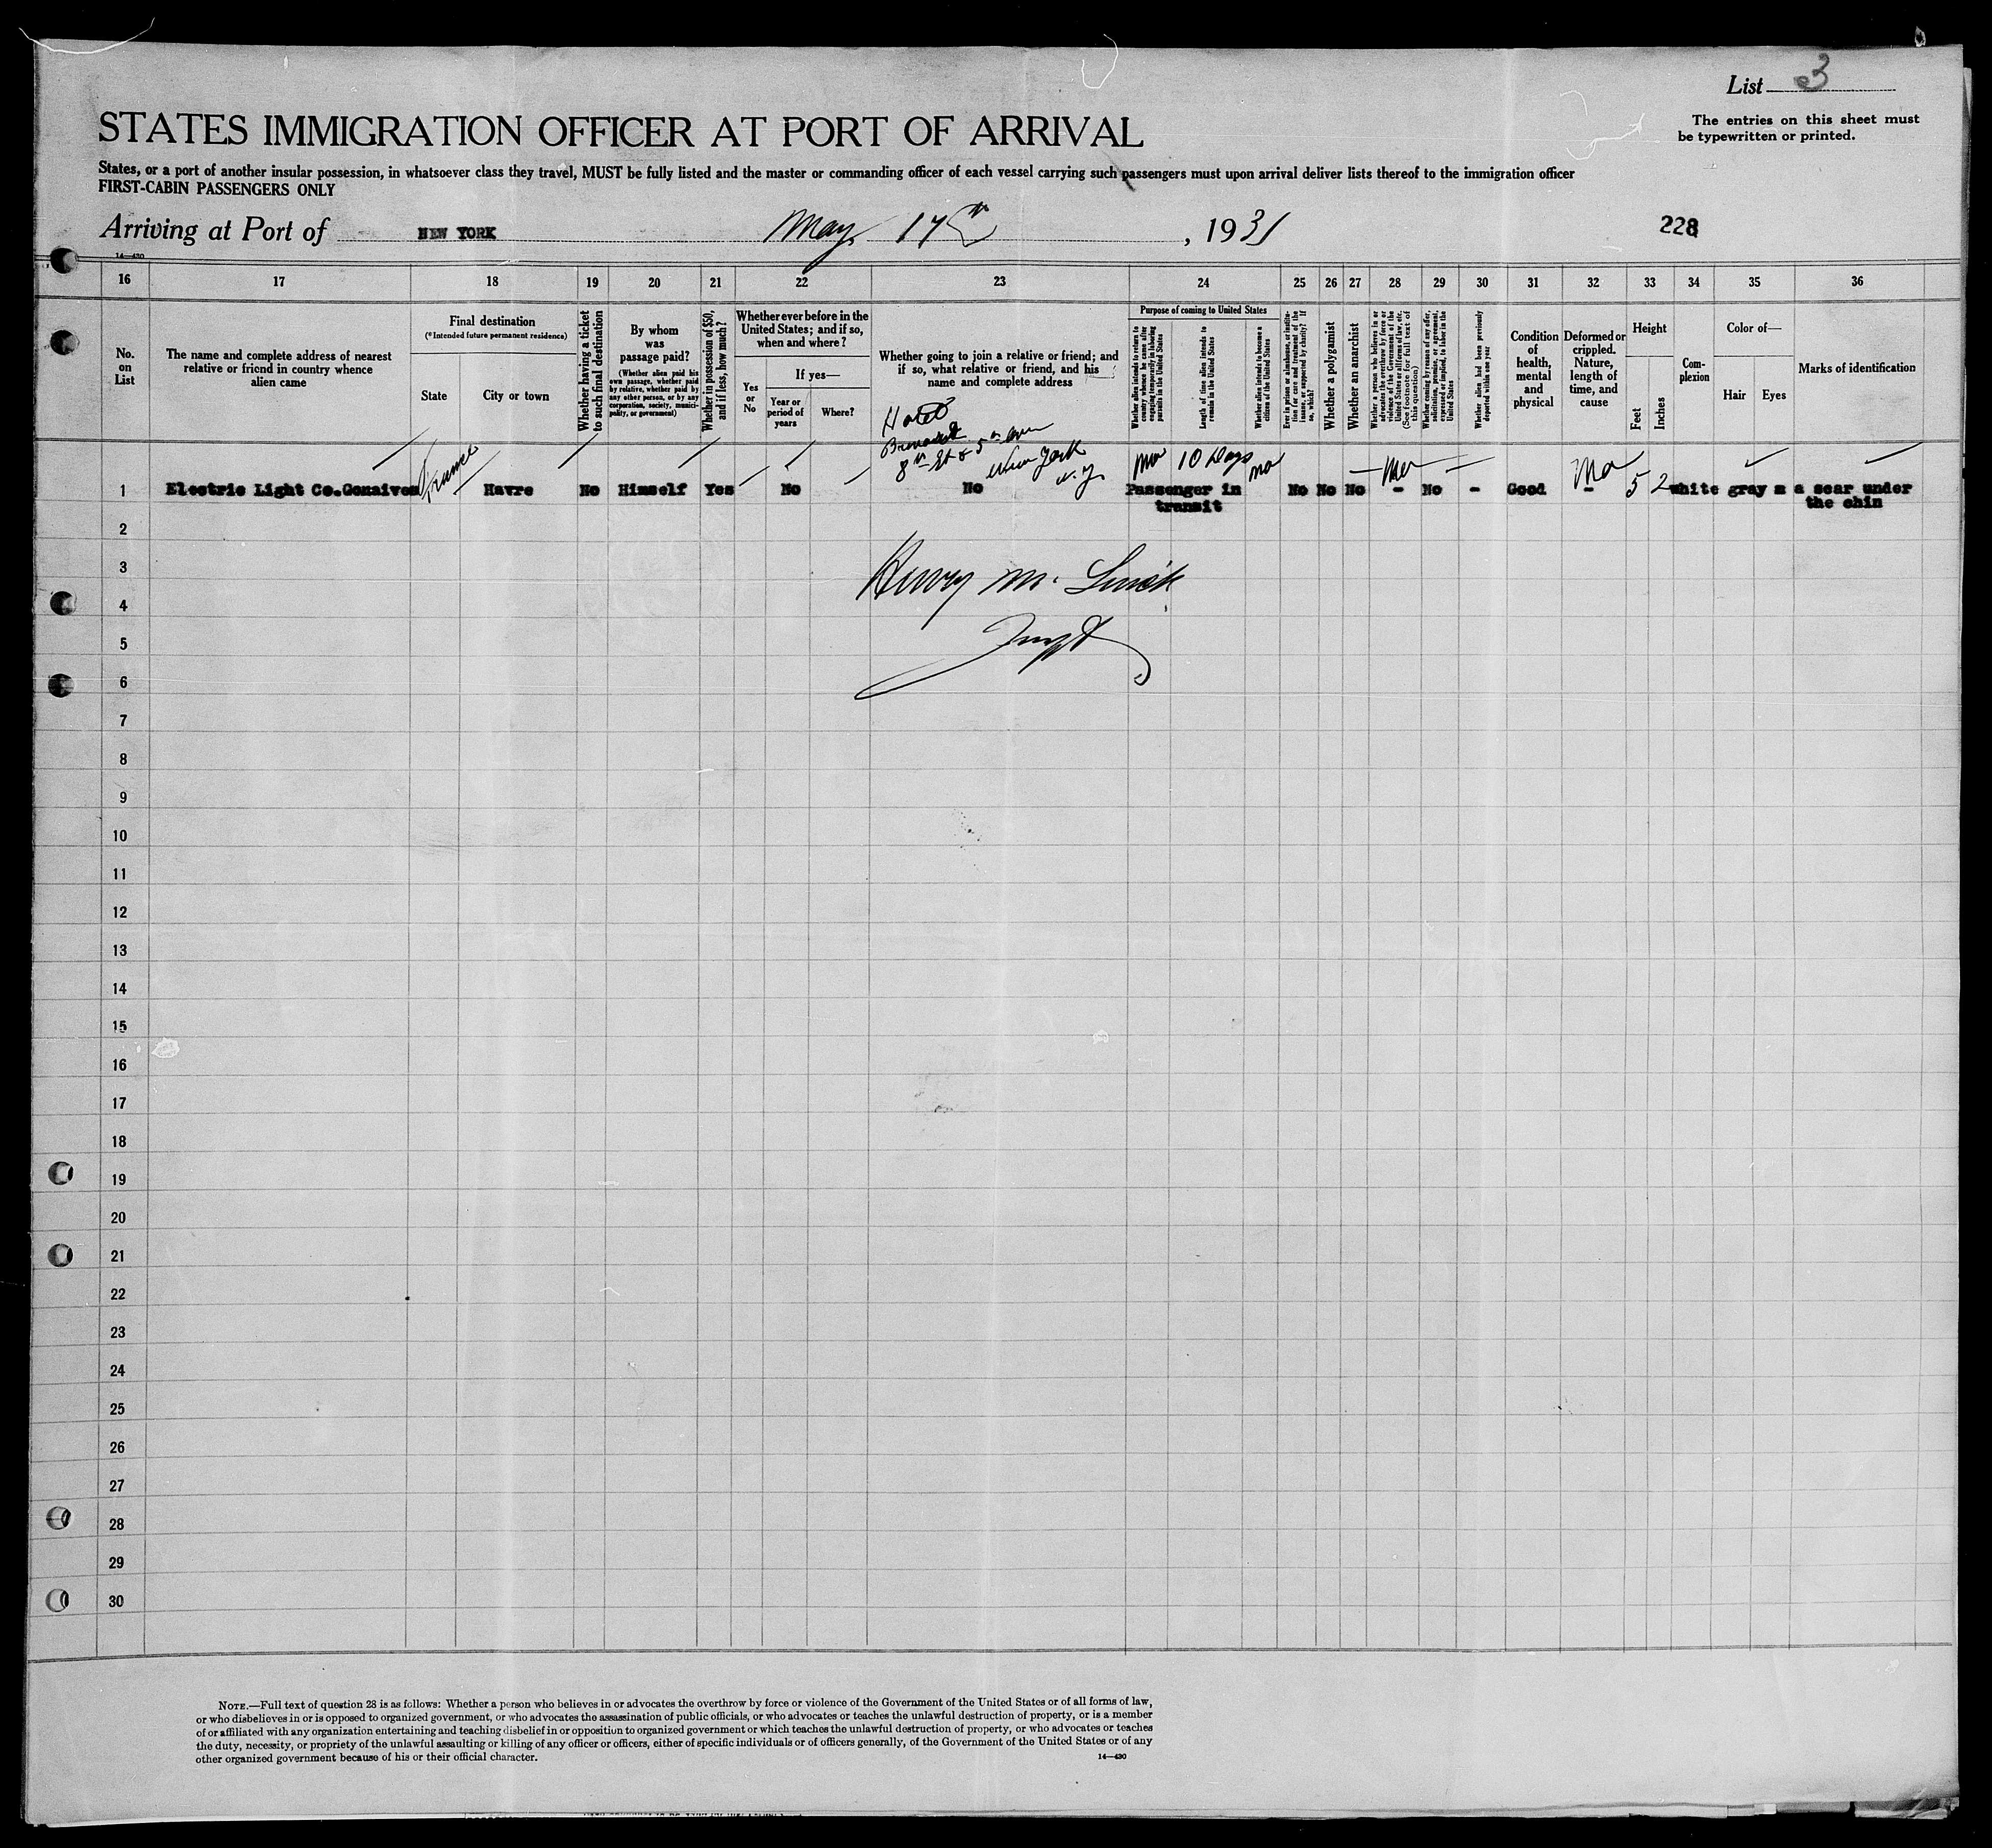 List 3
The entries on this sheet must
be typewritten or printed.
STATES IMMIGRATION OFFICER AT PORT OF ARRIVAL
States, or a port of another insular possession, in whatsoever class they travel, MUST be fully listed and the master or commanding officer of each vessel carrying such passengers must upon arrival deliver lists thereof to the immigration officer
FIRST-CABIN PASSENGERS ONLY
Arriving at Port of NEW YORK May 17th, 1931
228
14—430
16 17 18 19 20 21 22 23 24 25 26 27 28 29 30 31 32 33 34 35 36
No.
on
List
The name and complete address of nearest
relative or friend in country whence
alien came
Final destination
(*Intended future permanent residence)
State
City or town
Whether having a ticket
to such final destination
By whom
was
passage paid?
(Whether alien paid his
own passage, whether paid
by relative, whether paid by
any other person, or by any
corporation, society, munici-
pality, or government)
Whether in possession of $50,
and if less, how much?
Whether ever before in the
United States; and if so,
when and where?
Yes
or
No
If yes—
Year or
period of
years
Where?
Whether going to join a relative or friend; and
if so, what relative or friend, and his
name and complete address
Purpose of coming to United States
Whether alien intends to return to
country whence he came after
engaging temporarily in laboring
pursuits in the United States
Length of time alien intends to
remain in the United States
Whether alien intends to become a
citizen of the United States
Ever in prison or almshouse, or institu-
tion for care and treatment of the
insane, or supported by charity? If
so, which?
Whether a polygamist
Whether an anarchist
Whether a person who believes in or
advocates the overthrow by force or
violence of the Government of the
United States or all forms of law, etc.
(See footnote for full text of
this question)
Whether coming by reason of any offer,
solicitation, promise, or agreement,
expressed or implied, to labor in the
United States
Whether alien had been previously
deported within one year
Condition
of
health,
mental
and
physical
Deformed or
crippled.
Nature,
length of
time, and
cause
Height
Feet
Inches
Com-
plexion
Color of—
Hair
Eyes
Marks of identification
Hotel
8th St & 5th Ave
New York
N.Y.
France
No 10 Days No
No
No
1 Electric Light Co.Gonaives Havre No Himself Yes No No Passenger in No No No - No - Good - 5 2 white gray a scar under
transit the chin
2
3
Henry M.
4
5
Inspt
6
7
8
9
10
11
12
13
14
15
16
17
18
19
20
21
22
23
24
25
26
27
28
29
30
NOTE.—Full text of question 28 is as follows: Whether a person who believes in or advocates the overthrow by force or violence of the Government of the United States or of all forms of law,
or who disbelieves in or is opposed to organized government, or who advocates the assassination of public officials, or who advocates or teaches the unlawful destruction of property, or is a member
of or affiliated with any organization entertaining and teaching disbelief in or opposition to organized government or which teaches the unlawful destruction of property, or who advocates or teaches
the duty, necessity, or propriety of the unlawful assaulting or killing of any officer or officers, either of specific individuals or of officers generally, of the Government of the United States or of any
other organized government because of his or their official character.
14—430